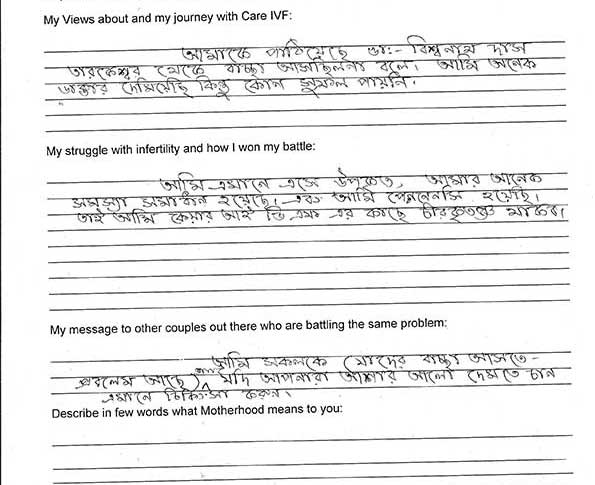 My Views about and my journey with Care IVF:
আমাকে পাঠিয়েছে ডা:- বিশ্বনাথ দাস
তারকেশ্বর থেকে বাচ্চা আসছিলনা বলে। আমি অনেক
ডাক্তার দেখিয়েছি কিন্তু কোন সুফল পায়নি।
My struggle with infertility and how I won my battle:
আমি এখানে এসে উপকৃত, আমার অনেক
সমস্যা সমাধান হয়েছে। এবং আমি প্রেগনেনসি হয়েছি।
তাই আমি কেয়ার আই ভি এফ এর কাছে চীরকৃতজ্ঞ থাকব।
My message to other couples out there who are battling the same problem:
আমি সকলকে (যাদের বাচ্চা আসতে-
প্রবলেম আছে) যদি আপনারা আশার আলো দেখতে চান
এখানে চিকিৎসা করুন।
Describe in few words what Motherhood means to you: